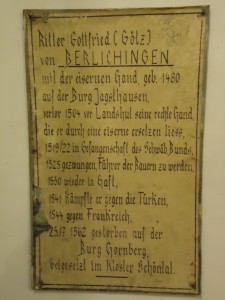 Ritter Gottfried (Götz)
von BERLICHINGEN
mit der eisernen Hand, geb. 1480
auf der Burg Jagsthausen,
verlor 1504 vor Landshut seine rechte Hand,
die er durch eine eiserne ersetzen liess,
1519/22 in Gefangenschaft des Schwäb. Bunds,
1525 gezwungen, Führer der Bauern zu werden,
1530 wieder in Haft,
1541 kämpfte er gegen die Türken,
1544 gegen Frankreich,
1562 gestorben auf der
Burg Hornberg,
beigesetzt im Kloster Schöntal.